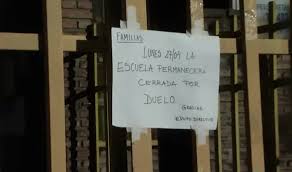 FAMILIAS
LUNES 27/09 LA
ESCUELA PERMANECERÁ
CERRADA POR
DUELO.
GRACIAS
EQUIPO DIRECTIVO